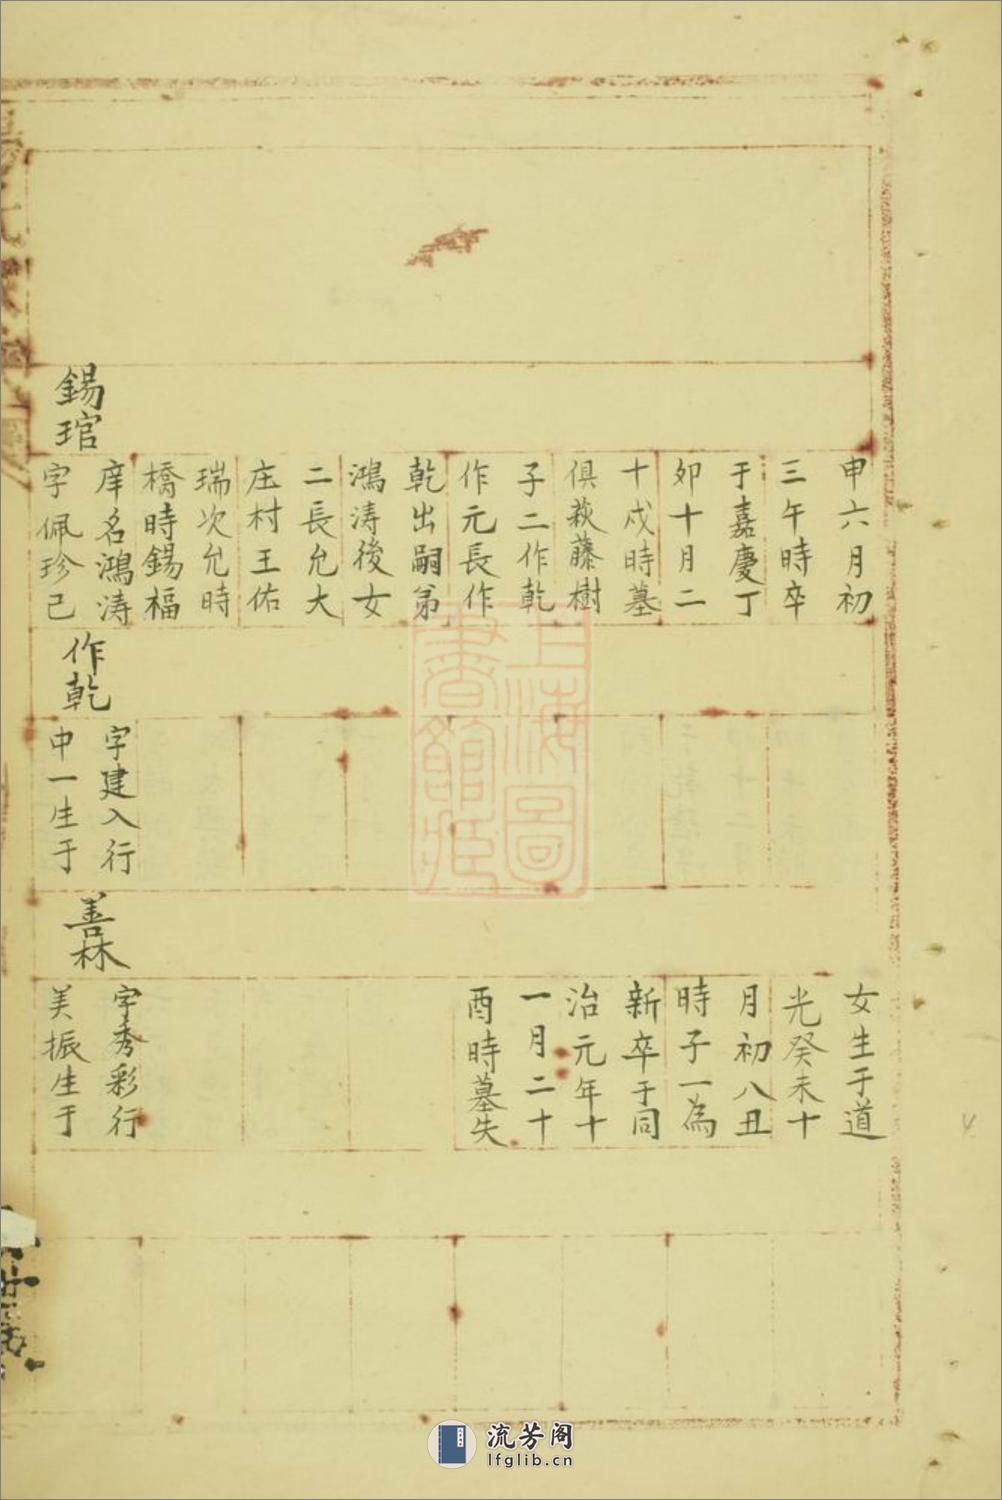 申六月初
三午時卒
于嘉慶丁
卯十月二
十戍時墓
俱萩藤樹
子二作乾
作元長作
乾出嗣弟
鴻涛後女
二長允大
庄村王佑
瑞次允時
橋時錫福
錫琯
庠名鴻涛
字佩珍己
作乾
字建入行
中一生于
女生于道
光癸未十
月初八丑
時子一為
新卒于同
治元年十
一月二十
酉時墓失
善林
字秀彩行
美振生于
上海圖
書館藏
流芳阁
lfglib.cn